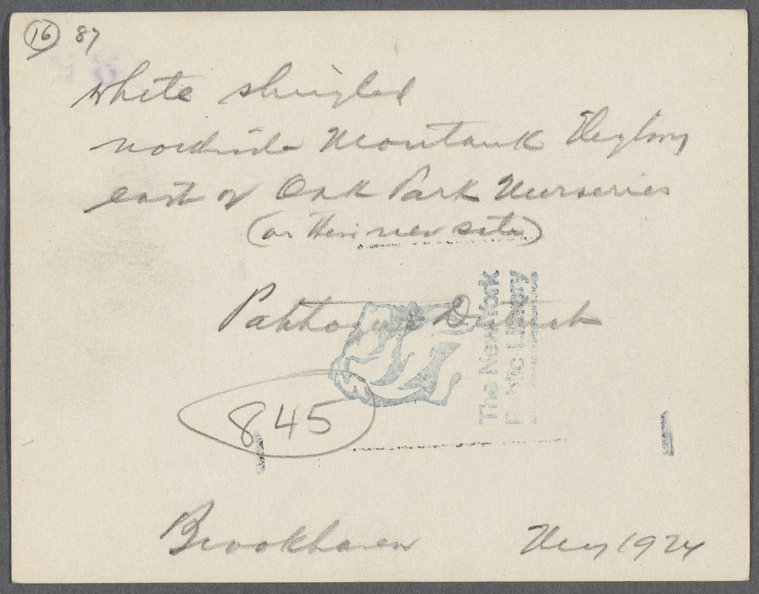 16 87
white shingled
northside Montauk Highway
east of Oak Park Nurseries
(or their new site)
Patchogue District
The New York
Public Library
845
Brookhaven 1924